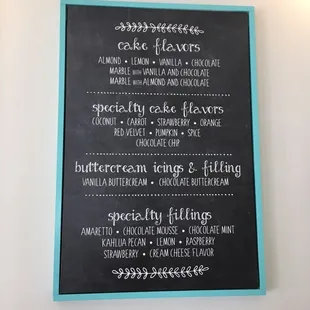 cake flavors
ALMOND • LEMON • VANILLA • CHOCOLATE
MARBLE WITH VANILLA AND CHOCOLATE
MARBLE WITH ALMOND AND CHOCOLATE
specialty cake flavors
COCONUT • CARROT • STRAWBERRY • ORANGE
RED VELVET • PUMPKIN • SPICE
CHOCOLATE CHIP
buttercream icings & filling
VANILLA BUTTERCREAM • CHOCOLATE BUTTERCREAM
specialty fillings
AMARETTO • CHOCOLATE MOUSSE • CHOCOLATE MINT
KAHLUA PECAN • LEMON • RASPBERRY
STRAWBERRY • CREAM CHEESE FLAVOR